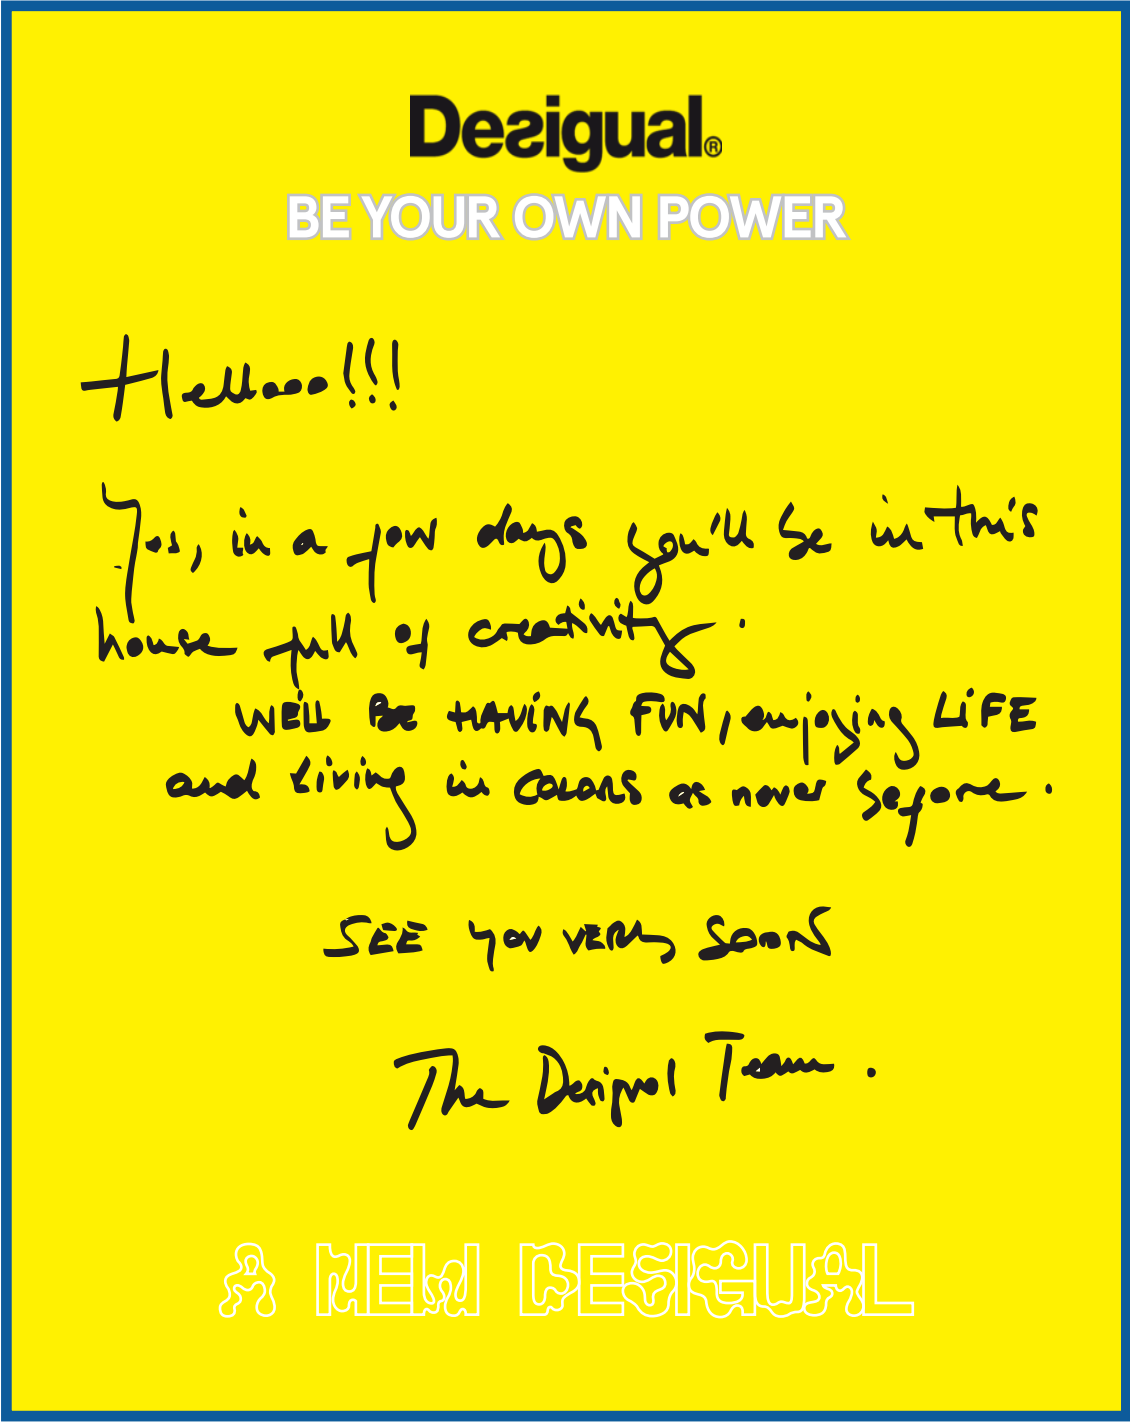 Desigual®
BE YOUR OWN POWER
Hellooo!!!
Yes, in a few days you'll be in this
house full of creativity.
WE'LL BE HAVING FUN, enjoying LiFE
and living in COLORS as never before.
SEE YOU VERY SOON
The Desigual Team.
A NEW DESIGUAL